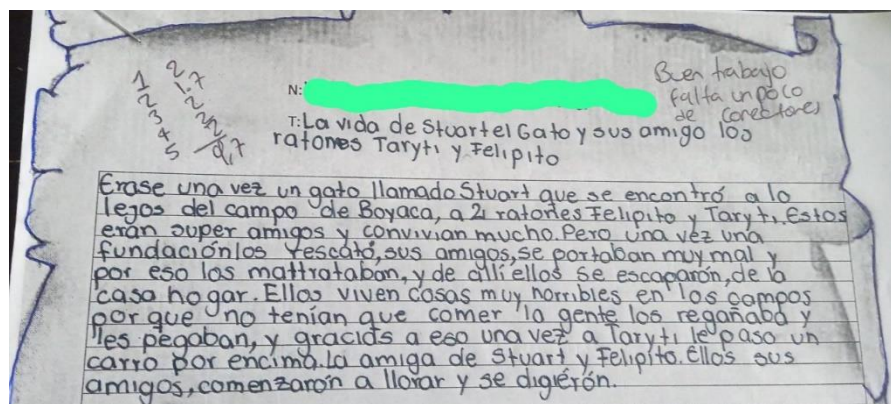 N:
Buen trabajo
falta un poco
de conectores
1 2.7
2 1.2
3 2
4 2
5 9,7
T: La vida de Stuart el Gato y sus amigo los
ratones Taryti y Felipito
Erase una vez un gato llamado Stuart que se encontró a lo
lejos del campo de Boyaca, a 2 ratones Felipito y Taryti. Estos
erán super amigos y convivian mucho. Pero una vez una
fundación los rescató, sus amigos, se portaban muy mal y
por eso los maltrataban, y de allí ellos se escaparón, de la
casa hogar. Ellos viven cosas muy horribles en los campos
por que no tenían que comer la gente los regañaba y
les pegaban, y gracias a eso una vez a Taryti le paso un
carro por encima. La amiga de Stuart y Felipito. Ellos sus
amigos, comenzarón a llorar y se digierón.